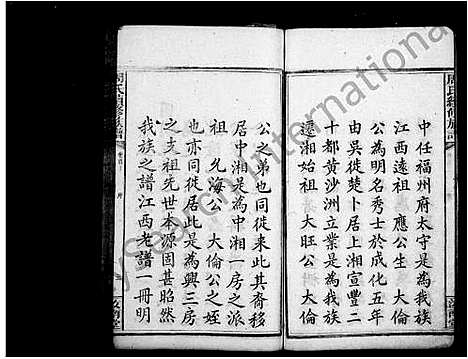 周氏續修族譜
中任福州府太守是為我族
江西遠祖 應公生 大倫
公為明名秀士於成化五年
由吳徙楚卜居上湘宣豐二
十都黃沙洲立業是為我族
遷湘始祖 大旺公 大倫
汝南堂
公之弟也同徙來此其裔移
居中湘是為中湘一房之派
祖 允海公 大倫公之姪
也亦同徙居此是為興三房
之支祖先世本源固甚昭然
我族之譜江西老譜一冊明
周氏續修族譜
卷首
序
汝南堂